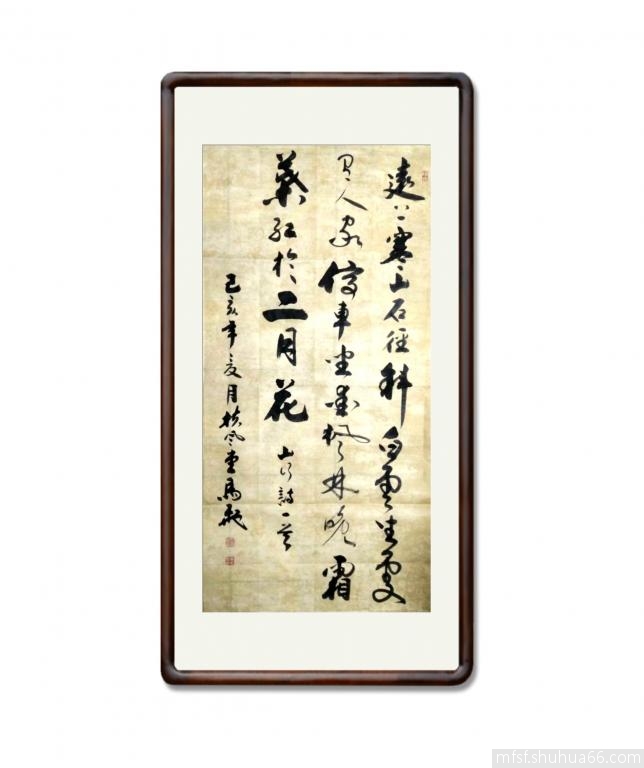 遠上寒山石徑斜白雲生處
有人家停車坐愛楓林晚霜
葉紅於二月花 山行詩一首
己亥年夏月扶風堂馬飛
mfsf.shuhua66.com